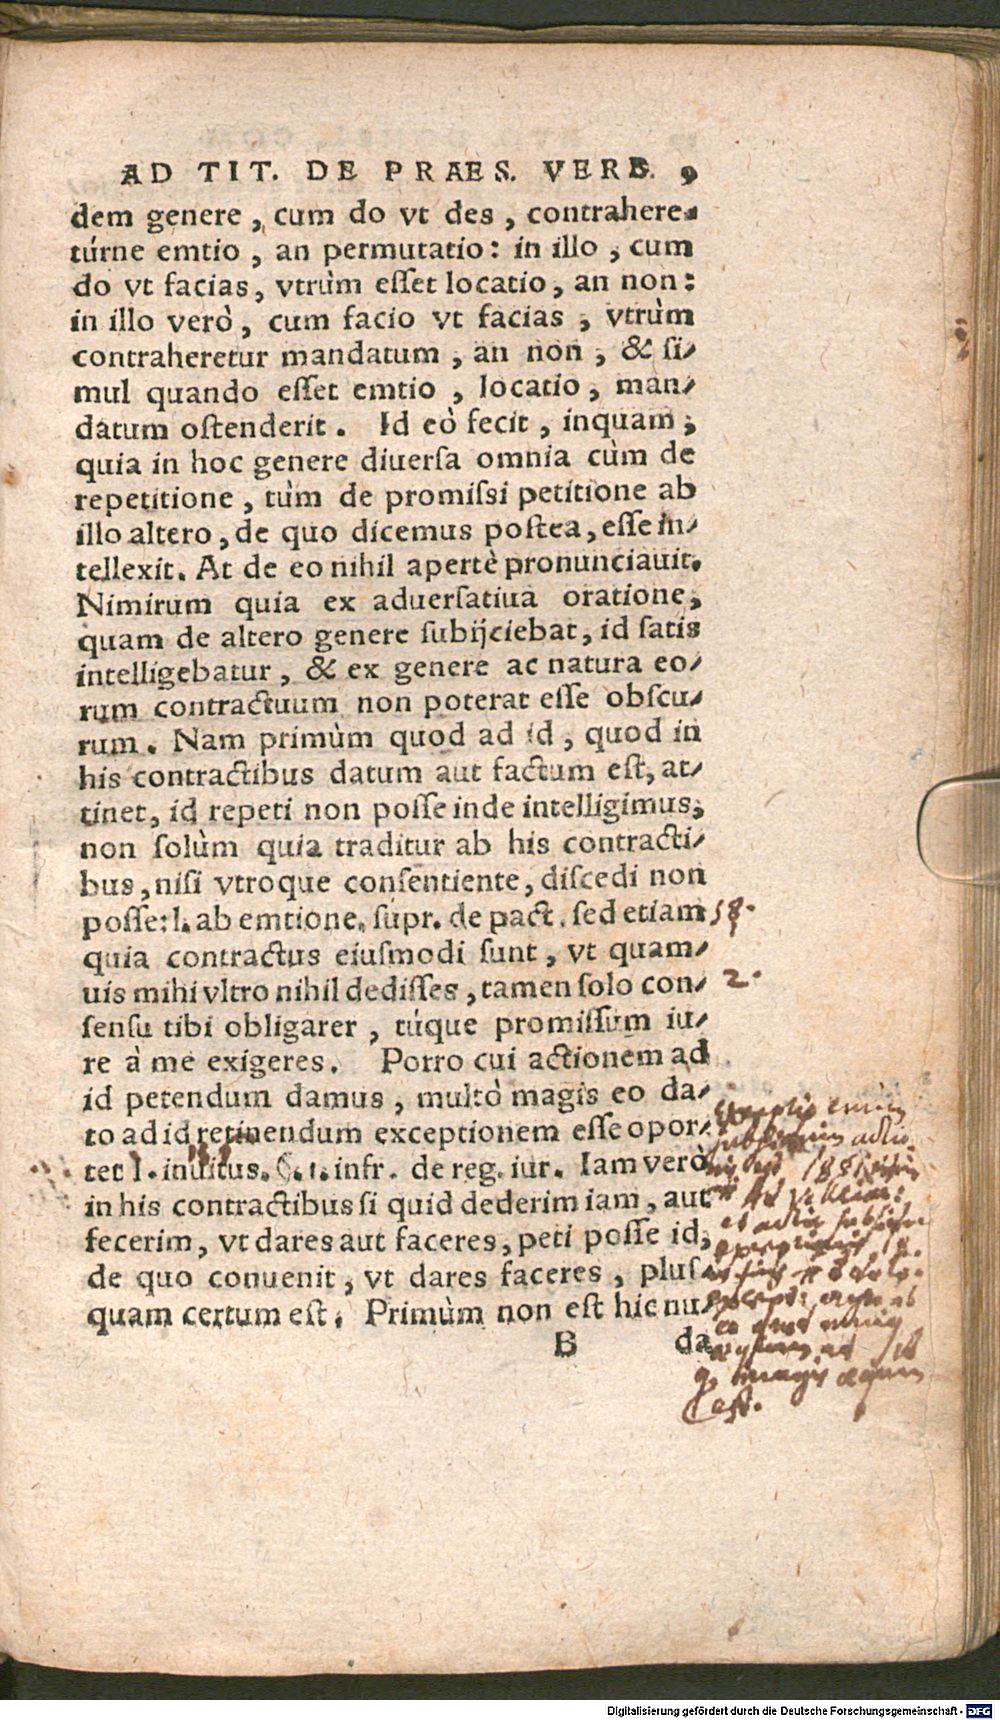 AD TIT. DE PRAES. VERB. 9
dem genere, cum do vt des, contrahere⸗
túrne emtio, an permutatio: in illo, cum
do vt facias, vtrùm eſſet locatio, an non:
in illo verò, cum facio vt facias, vtrùm
contraheretur mandatum, an non, & ſi⸗
mul quando eſſet emtio, locatio, man⸗
datum oſtenderit. Id eò fecit, inquam,
quia in hoc genere diuerſa omnia cùm de
repetitione, tùm de promiſsi petitione ab
illo altero, de quo dicemus poſtea, eſſe in⸗
tellexit. At de eo nihil apertè pronunciauit.
Nimirum quia ex aduerſatiua oratione,
quam de altero genere ſubijciebat, id ſatis
intelligebatur, & ex genere ac natura eo⸗
rum contractuum non poterat eſſe obſcu⸗
rum. Nam primùm quod ad id, quod in
his contractibus datum aut factum eſt, at⸗
tinet, id repeti non poſſe inde intelligimus,
non ſolùm quia traditur ab his contracti⸗
bus, niſi vtroque conſentiente, diſcedi non
poſſe: l. ab emtione. ſupr. de pact. ſed etiam 58.
quia contractus eiuſmodi ſunt, vt quam⸗
uis mihi vltro nihil dediſſes, tamen ſolo con⸗ 2.
ſenſu tibi obligarer, túque promiſſum iu⸗
re à me exigeres. Porro cui actionem ad
id petendum damus, multò magis eo da⸗
to ad id retinendum exceptionem eſſe opor⸗
tet l. inuitus. §. 1. infr. de reg. iur. Iam verò
in his contractibus ſi quid dederim iam, aut
fecerim, vt dares aut faceres, peti poſſe id,
de quo conuenit, vt dares faceres, pluſ⸗
quam certum eſt. Primùm non eſt hic nu⸗
B da
magis
est.
Digitalisierung gefördert durch die Deutsche Forschungsgemeinschaft - DFG